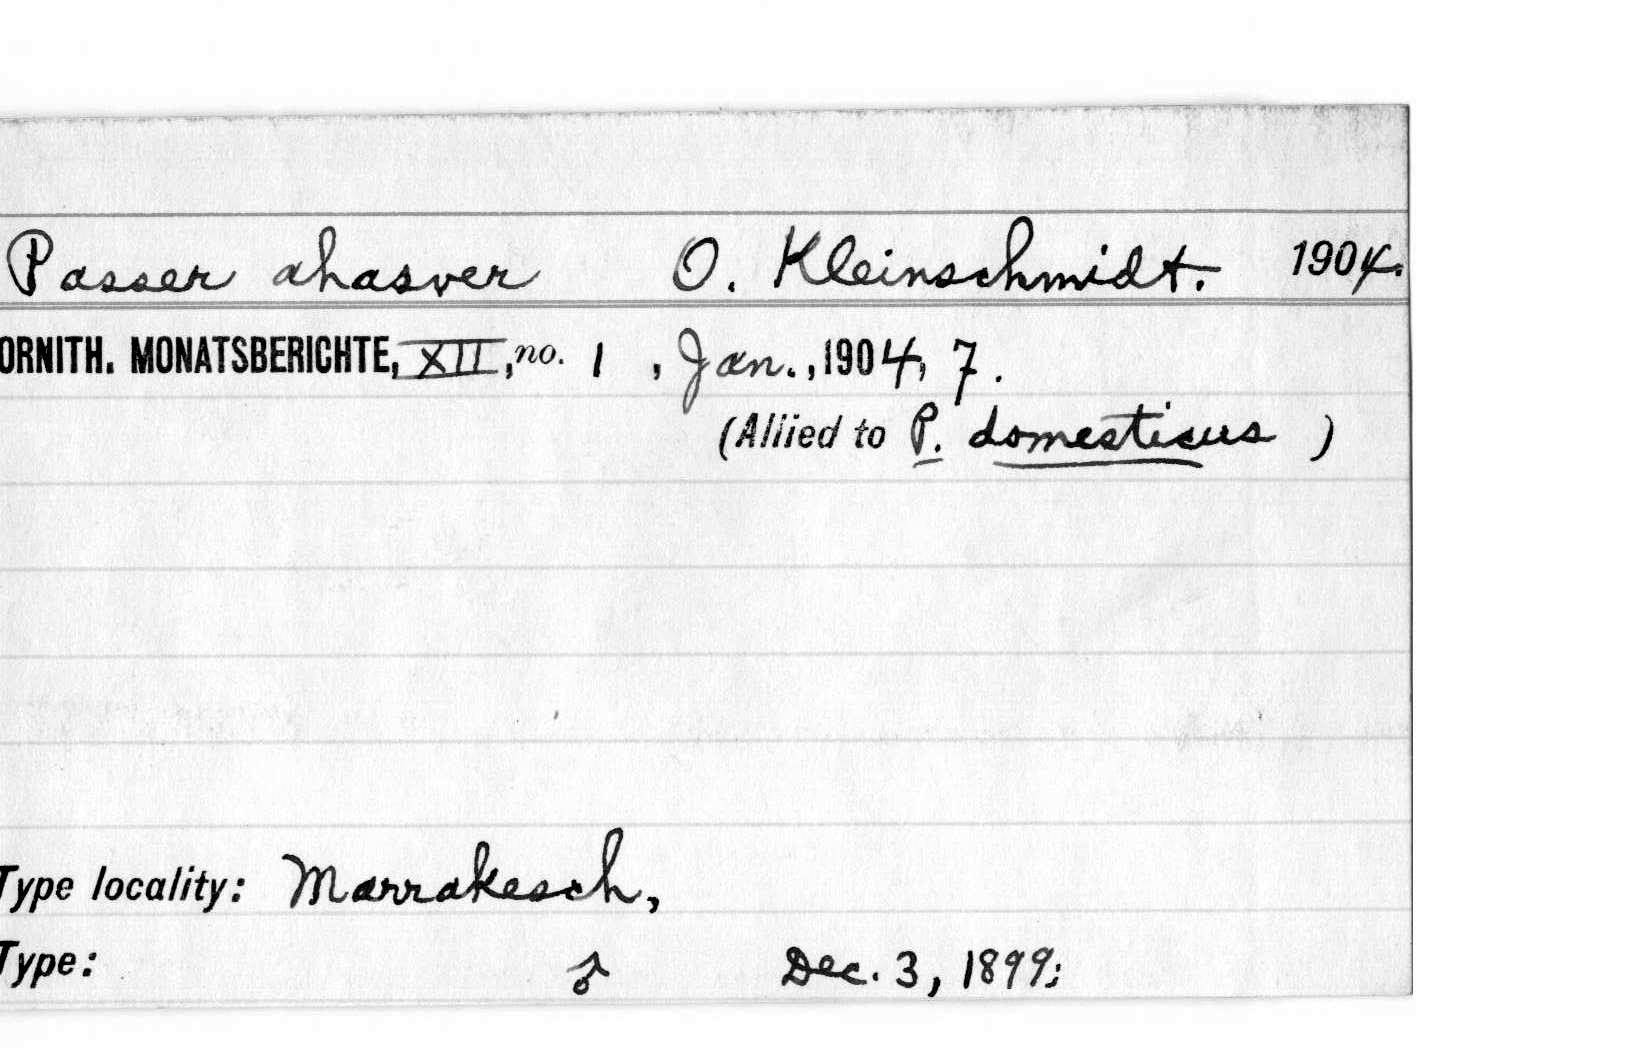 Passer ahasver O. Kleinschmidt. 1904.
ORNITH. MONATSBERICHTE, XII, no. 1, Jan., 1904, 7.
(Allied to P. domesticus )
Type locality: Marrakesch,
Type: ♂ Dec. 3, 1899;